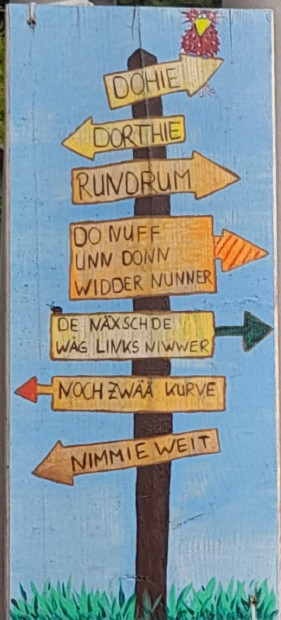 DOHIE
DORTHIE
RUNDRUM
DO NUFF
UNN DONN
WIDDER NUNNER
DE NÄXSCHDE
WÄG LINKS NIWWER
NOCH ZWÄÄ KURVE
NIMMIE WEIT